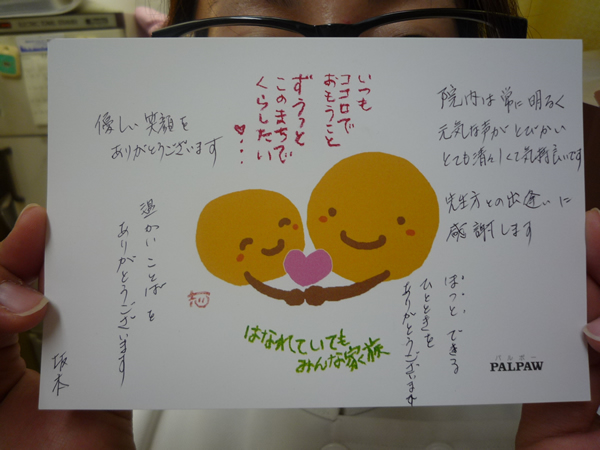 いつも
ココロで
おもうこと
ずうっと
このまちで
くらしたい
♥・・・
院内は常に明るく
元気な声がとびかい
とても清々しくて気持良いです
先生方との出逢いに
感謝します
優しい笑顔を
ありがとうございます
温かいことばを
ありがとうございます
坂本
ほっとできる
ひとときを
ありがとうございます
はなれていても
みんな家族
パルポー
PALPAW